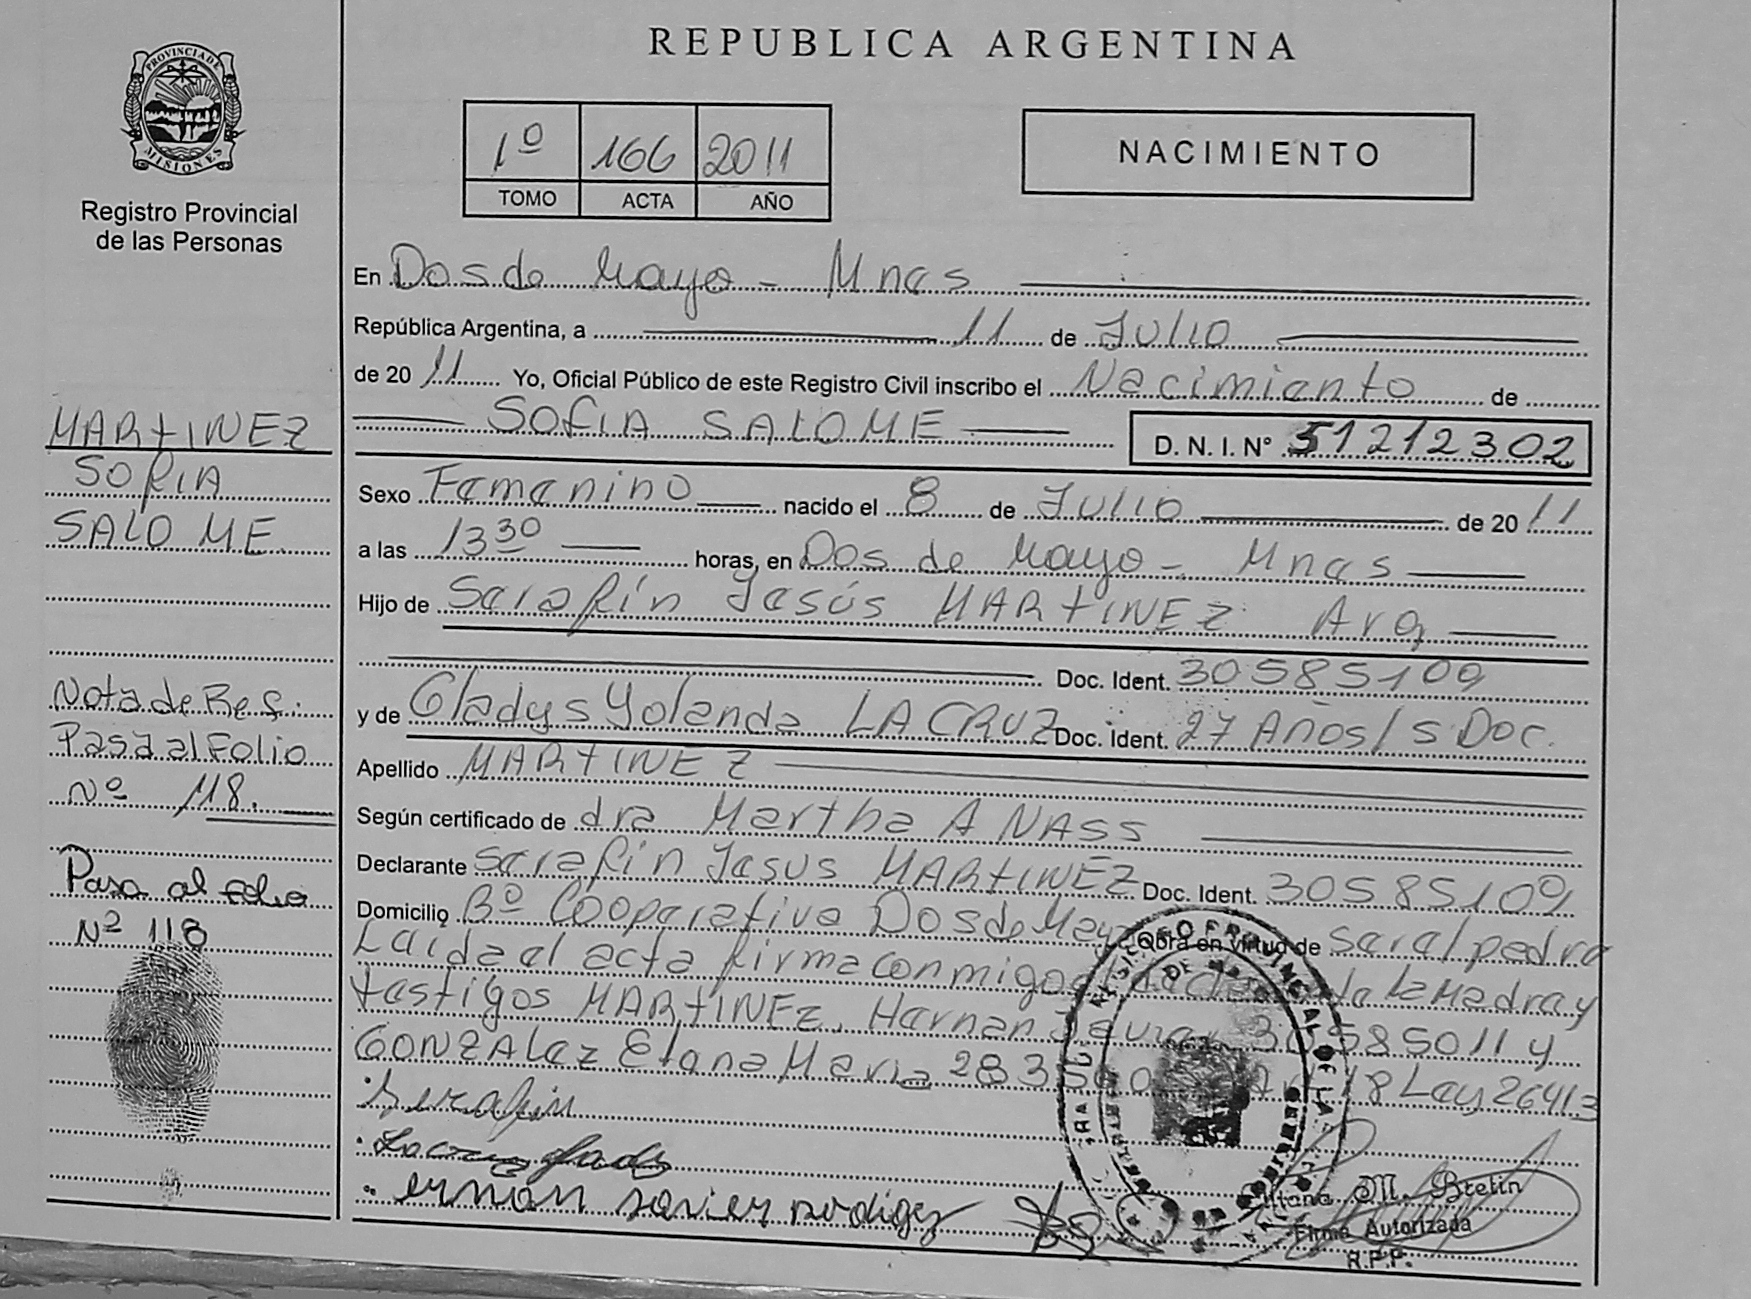 REPUBLICA ARGENTINA
PROVINCIA DE
MISIONES
Registro Provincial
de las Personas
1º 166 2011
TOMO ACTA AÑO
NACIMIENTO
MARTINEZ
SOFIA
SALOME
Nota de Ref:
Pasa al Folio
Nº 118.
Pasa al folio
Nº 118
En Dos de Mayo - Mnas
República Argentina, a 11 de Julio
de 20 11 Yo, Oficial Público de este Registro Civil inscribo el Nacimiento de
SOFIA SALOME D. N. I. Nº 51212302
Sexo Femenino nacido el 8 de Julio de 20 11
a las 13 30 horas, en Dos de Mayo - Mnas
Hijo de Serafín Jesús MARTINEZ Arg
Doc. Ident. 30585109
y de Gladys Yolanda LA CRUZ Doc. Ident. 27 Años/S Doc.
Apellido MARTINEZ
Según certificado de dra Martha A NASS
Declarante Serafín Jesus MARTINEZ Doc. Ident. 30585109
Domicilio Bº Cooperativa Dos de Mayo Obra en virtud de ser al pedro
Leida el acta firma conmigo la Madre y
testigos MARTINEZ, Hernan 30585011 y
GONZALEZ Maria 18 Ley 26413
Serafin
ernan javier
M. Bretin
Firma Autorizada
R.P.P.